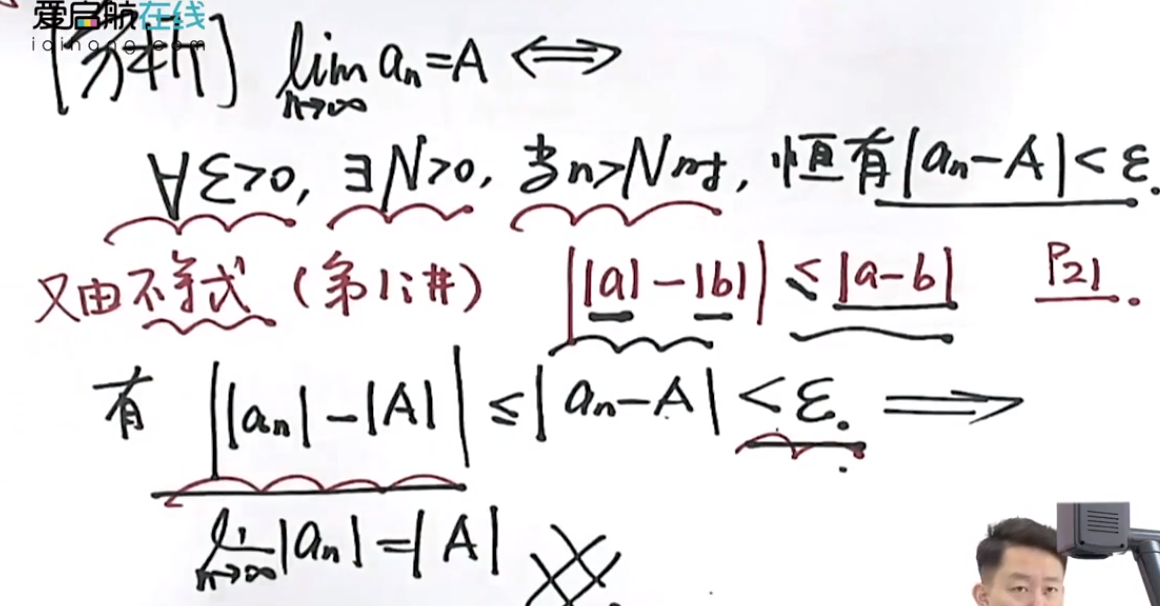 爱启航在线
iqihang.com
[分析] lim n→∞ aₙ=A ⟺
∀ε>0, ∃N>0, 当n>N时, 恒有|aₙ-A|<ε.
又由不等式 (第1讲) ||a|-|b||≤|a-b| P21.
有 ||aₙ|-|A||≤|aₙ-A|<ε. ⟹
lim n→∞ |aₙ|=|A|